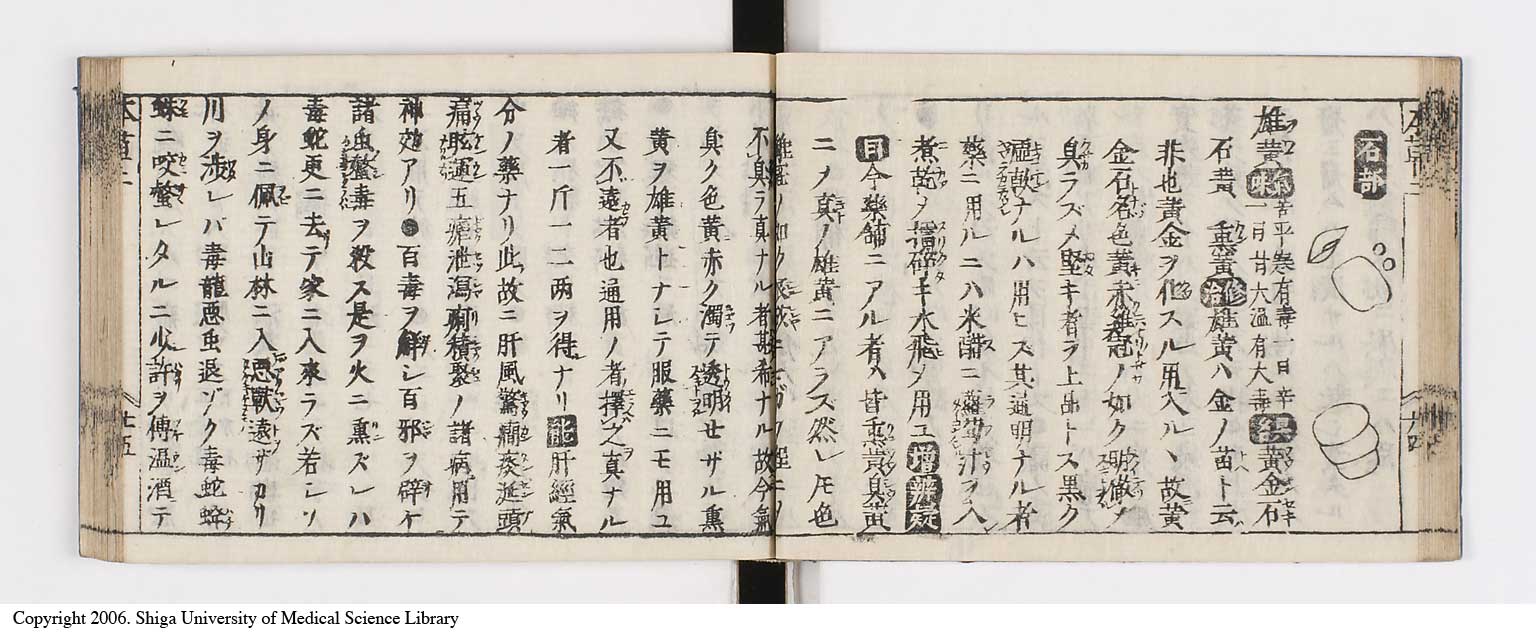 石部
雄黄 味 苦平寒有毒一曰辛
一曰甘大温有大毒 黄金石
石黄、熏黄 修治 雄黄ハ金ノ苗ト云
非也黄金ヲ化スル用入ル、故黄
金石名色黄赤雞冠ノ如ク明徹ノ
臭ラズメ堅キ者ヲ上品トス黒ク
ナルハ用ヒズ其透明ナル者
藥ニ用ルニハ米醋ニ蘿蔔汁ヲ入
煮乾メ擂碎キ水飛メ用ユ 増 辨疑
曰今藥舖ニアル者ハ皆熏黄臭黄
ニノ真ノ雄黄ニアラス然レ𪜈色
不臭ラ真ナル者甚希ナル故今氣
臭ク色黄赤ク濁テ透明セザル熏
黄ヲ雄黄トナシテ服藥ニモ用ユ
又不遠者也通用ノ者擇之真ナル
者一斤一二両ヲ得ナリ 能 肝經氣
分ノ藥ナリ此故ニ肝風驚癇痰涎頭
痛眩運五瘧泄瀉積聚ノ諸病用テ
神効アリ●百毒ヲ解シ百邪ヲ辟ケ
諸虫螫毒ヲ殺ス是ヲ火ニ熏ズレハ
毒蛇更ニ去テ家ニ入來ラズ若シソ
ノ身ニ佩テ山林ニ入悪獣遠サカリ
川ヲ渉レバ毒龍悪虫退ゾク毒蛇蜂
蛛ニ咬螫レタルニ少許ヲ傅温酒テ
七五
Copyright 2006. Shiga University of Medical Science Library